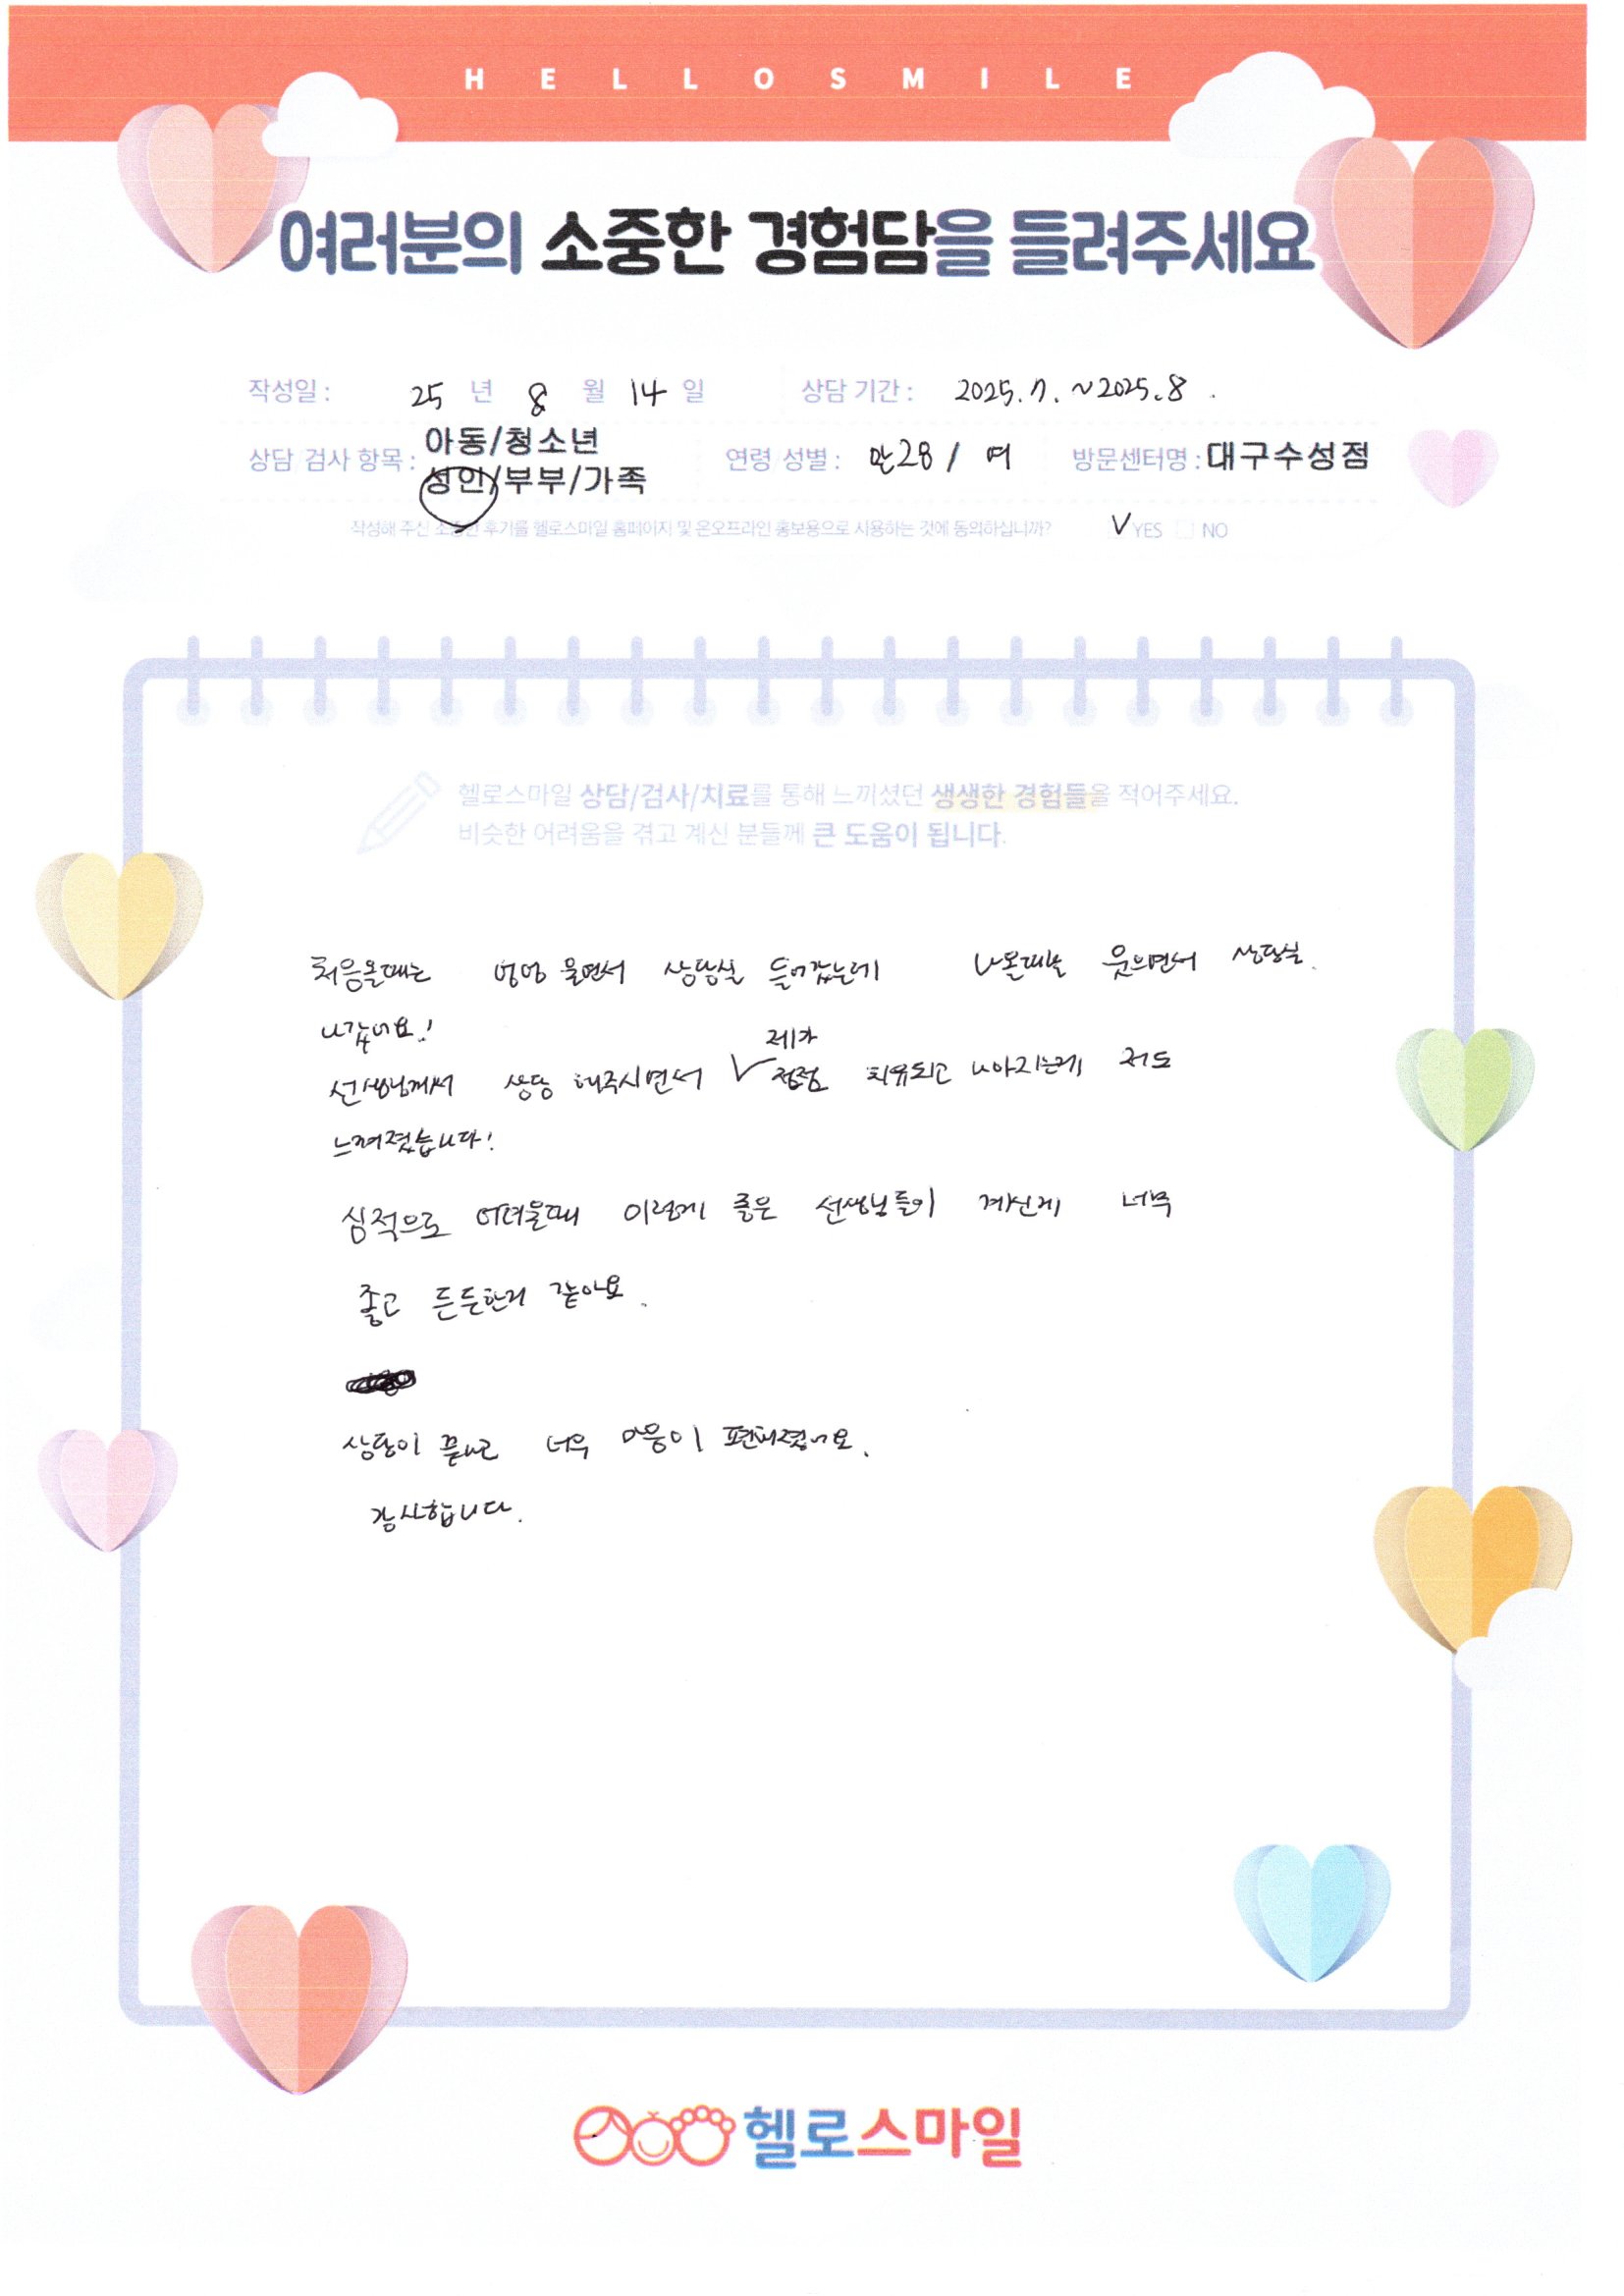 HELLOSMILE
여러분의 소중한 경험담을 들려주세요
작성일 : 25 년 8 월 14 일 상담 기간 : 2025.7. ~2025.8 .
상담/검사 항목 : 아동/청소년
성인/부부/가족
연령/성별 : 만28 / 여 방문센터명 : 대구수성점
작성해 주신 소중한 후기를 헬로스마일 홈페이지 및 온오프라인 홍보용으로 사용하는 것에 동의하십니까? V YES NO
헬로스마일 상담/검사/치료를 통해 느끼셨던 생생한 경험들을 적어주세요.
비슷한 어려움을 겪고 계신 분들께 큰 도움이 됩니다.
처음올때는 엉엉 울면서 상담실 들어갔는데 나올때는 웃으면서 상담실.
나갔어요!
선생님께서 상담 해주시면서 제가 점점 치유되고 나아지는게 저도
느껴졌습니다!
심적으로 어려울때 이렇게 좋은 선생님들이 계신게 너무
좋고 든든한거 같아요.
상담이 끝나고 너무 마음이 편해졌어요.
감사합니다.
헬로스마일